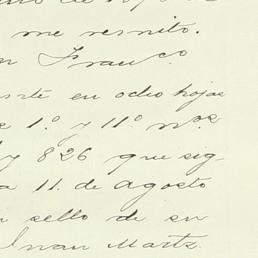 me resnito.
n Franco
en ocho hojas
1º. y 11º nos
y 826 que sig-
a 11. de agosto
n sello de su
Juan Martz.